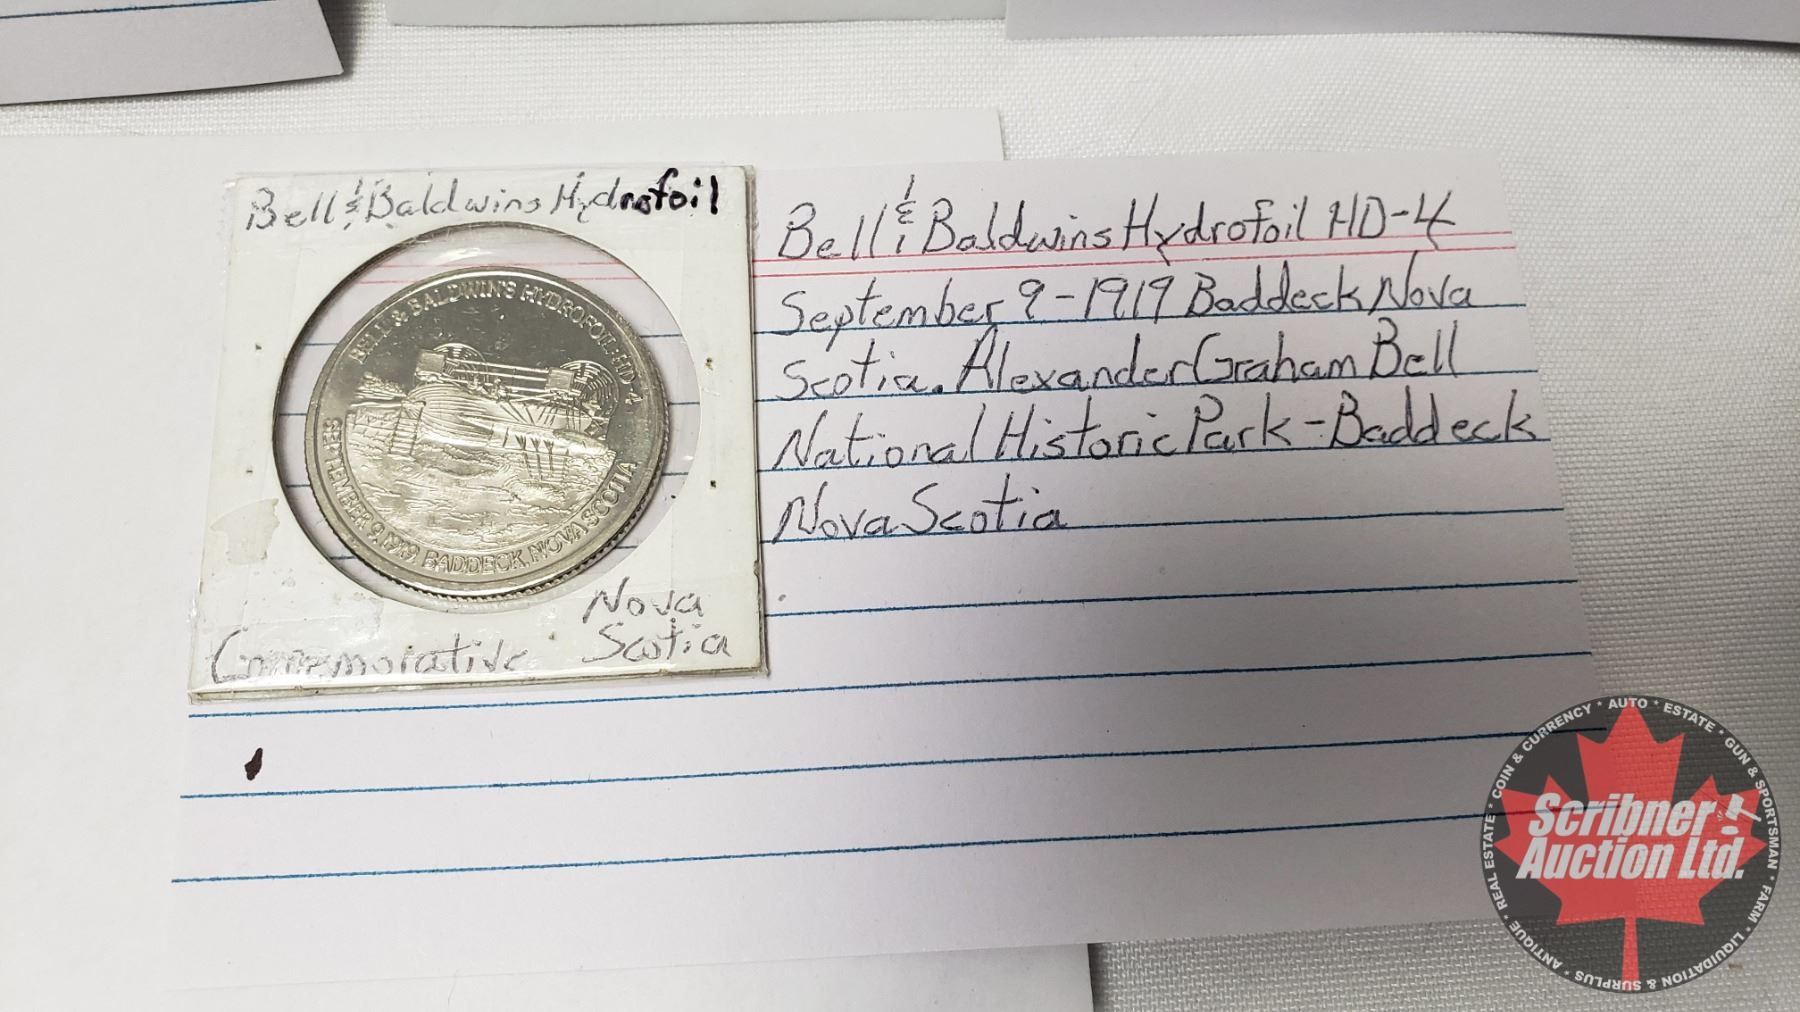 Bell & Baldwins Hydrofoil
BELL & BALDWIN'S HYDROFOIL-HD-4
SEPTEMBER 9, 1919, BADDECK, NOVA SCOTIA
Nova
Commemorative Scotia
Bell & Baldwins Hydrofoil HD-4
September 9-1919 Baddeck Nova
Scotia. Alexander Graham Bell
National Historic Park-Baddeck
Nova Scotia
Scribner
Auction Ltd.
REAL ESTATE * COIN & CURRENCY * AUTO * ESTATE * GUN & SPORTSMAN * FARM * LIQUIDATION & SURPLUS * ANTIQUE *